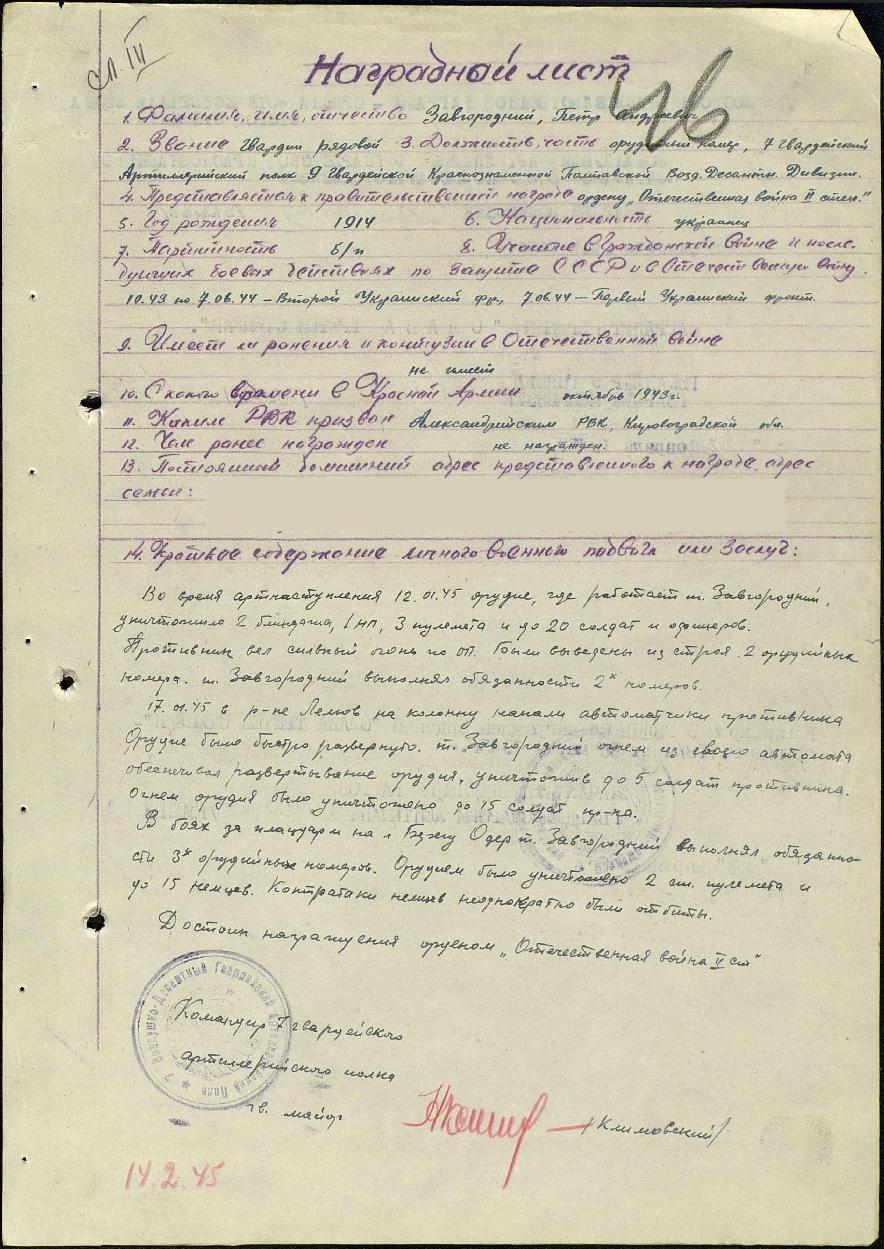 сл. III
46
Наградной лист
1. Фамилия, имя, отчество Завгородний, Петр Андреевич
2. Звание гвардии рядовой 3. Должность, часть орудийный номер, 7 гвардейский
Артиллерийский полк 9 Гвардейской Краснознаменной Полтавской Возд. Десантн. Дивизии.
4. Представляется к правительственной награде ордену „Отечественная война II степ."
5. Год рождения 1914 6. Национальность украинец
7. Партийность б/п 8. Участие в Гражданской войне и после-
дующих боевых действиях по защите СССР и в Отечественную войну
10.43 по 7.06.44 – Второй Украинский фр., 7.06.44 – Первый Украинский фронт.
9. Имеет ли ранения и контузии в Отечественной войне
не имеет
10. С какого времени в Красной Армии октябрь 1943г.
11. Каким РВК призван Александрийским РВК, Кировоградской обл.
12. Чем ранее награжден не награжден.
13. Постоянный домашний адрес представленного к награде, адрес
семьи:
14. Краткое содержание личного военного подвига или заслуг:
Во время артнаступления 12.01.45 орудие, где работает т. Завгородний,
уничтожило 2 блиндажа, 1 НП, 3 пулемета и до 20 солдат и офицеров.
Противник вел сильный огонь по ОП. Были выведены из строя 2 орудийных
номера. т. Завгородний выполнял обязанности 2х номеров.
17.01.45 в р-не Лелюв на колонну напали автоматчики противника
Орудие было быстро развернуто. т. Завгородний огнем из своего автомата
обеспечивал развертывание орудия, уничтожив до 5 солдат противника.
Огнем орудия было уничтожено до 15 солдат пр-ка.
В боях за плацдарм на л. Берегу Одер т. Завгородний выполнял обязанно-
сти 3х орудийных номеров. Орудием было уничтожено 2 ст. пулемета и
до 15 немцев. Контратаки немцев неоднократно были отбиты.
Достоин награждения орденом „Отечественная война II ст"
Командир 7 гвардейского
артиллерийского полка
гв. майор
/Климовский/
14.2.45